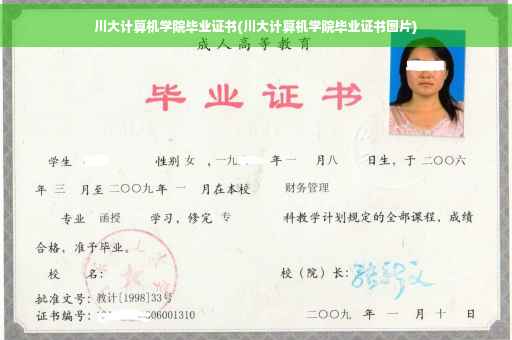 川大计算机学院毕业证书(川大计算机学院毕业证书图片)
成人高等教育
毕业证书
学生 性别 女 ，一九 年 一 月 八 日生，于 二〇〇六
年 三 月至 二〇〇九 年 一 月在本校 财务管理
专业 函授 学习，修完 专 科教学计划规定的全部课程，成绩
合格，准予毕业。
校 名： 校（院）长：
批准文号：教计[1998]33号
证书编号： 06001310 二〇〇九 年 一 月 十 日